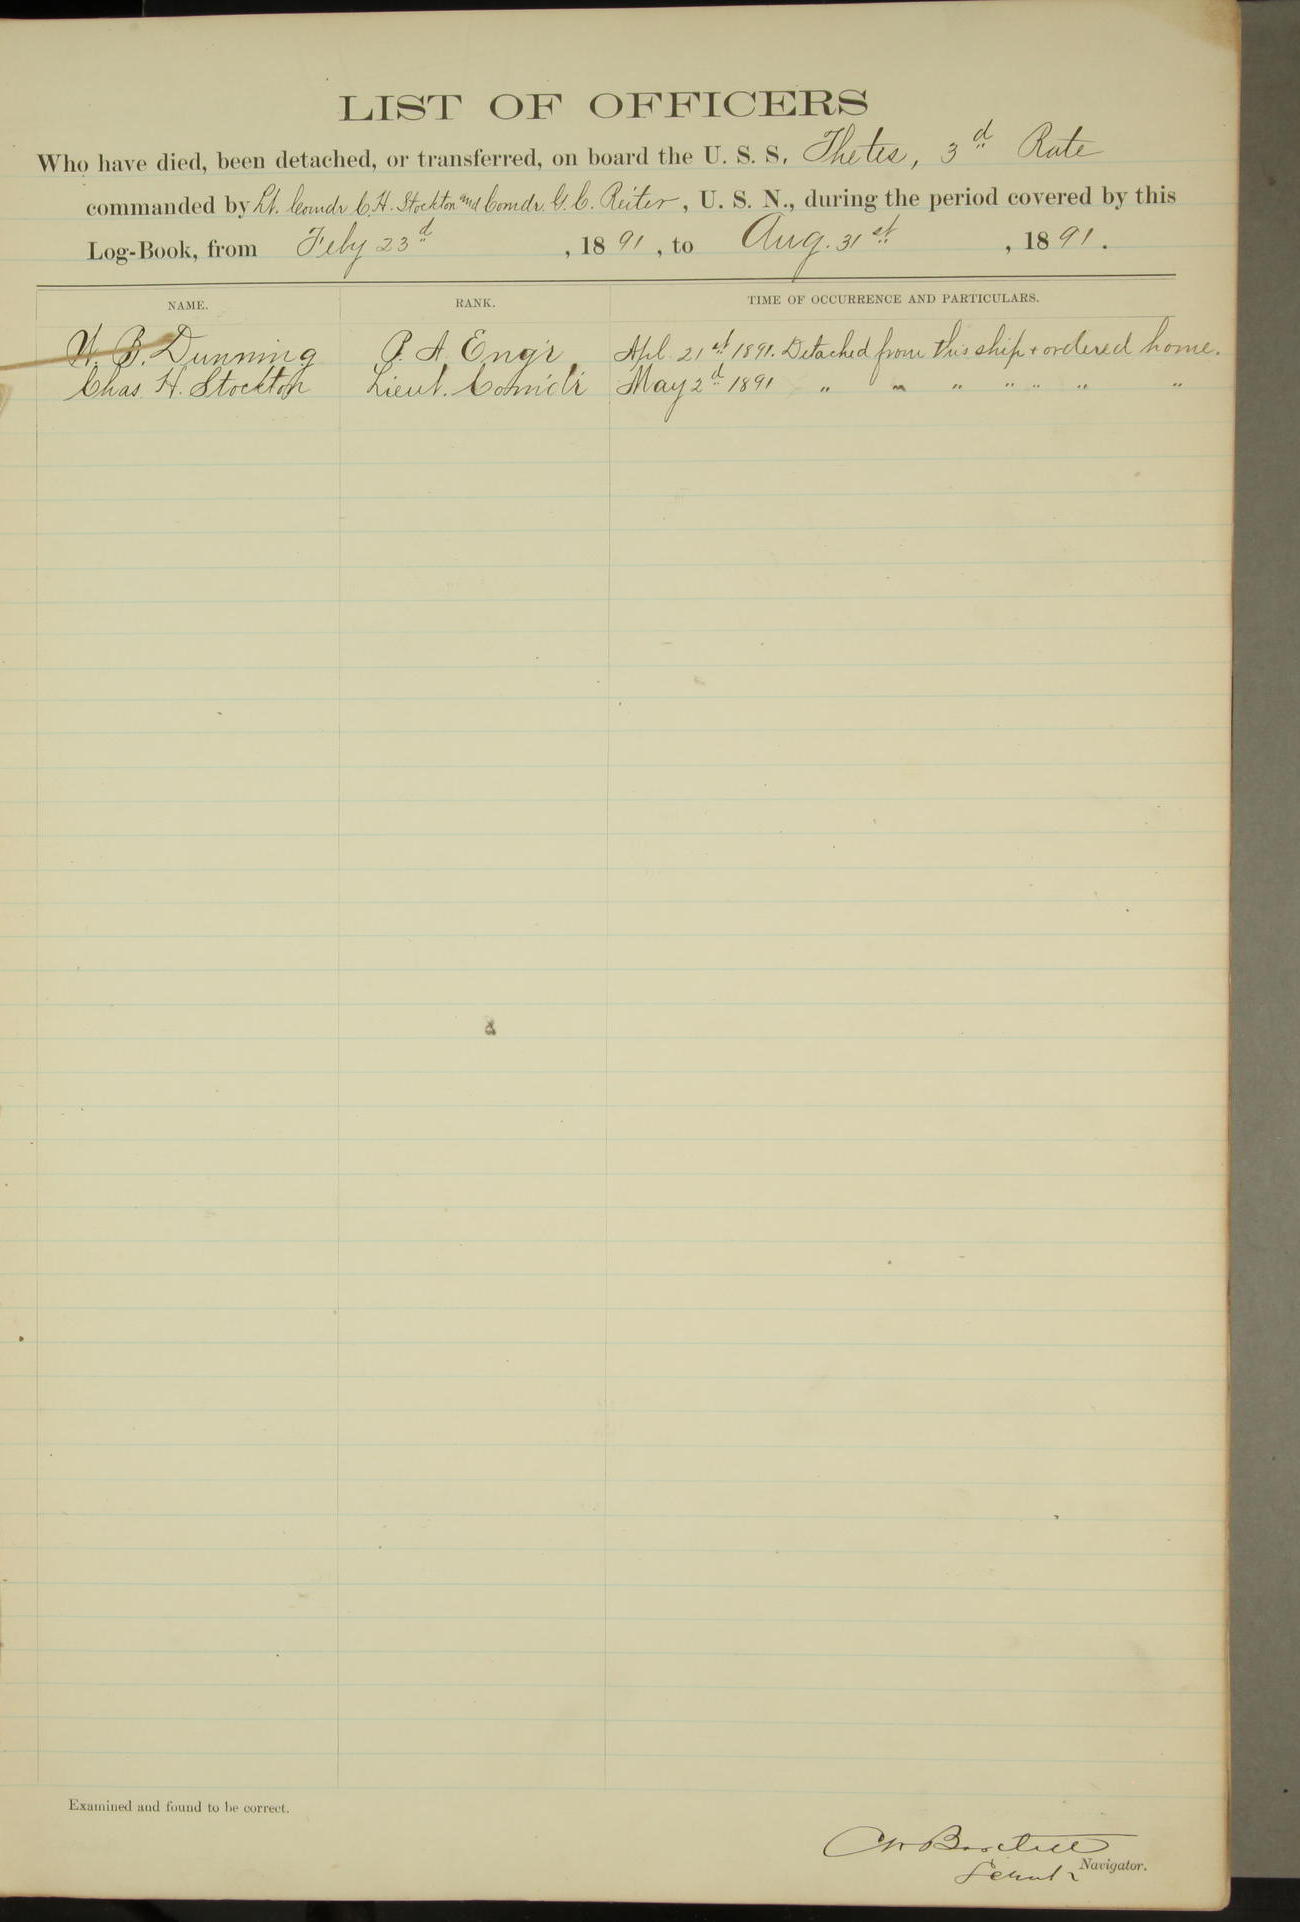 LIST OF OFFICERS
Who have died, been detached, or transferred, on board the U. S. S. Thetis, 3d Rate
commanded by Lt. Comdr C. H. Stockton and Comdr. G. C. Reiter, U. S. N., during the period covered by this
Log-Book, from Feby 23d, 1891, to Aug. 31st, 1891.
NAME. RANK. TIME OF OCCURRENCE AND PARTICULARS.
W. B. Dunning P. A. Engr Apl. 21st 1891. Detached from this ship + ordered home.
Chas. H. Stockton Lieut. Comdr May 2d 1891 " " " " " " "
Examined and found to be correct.
C W Bartlett
Navigator.